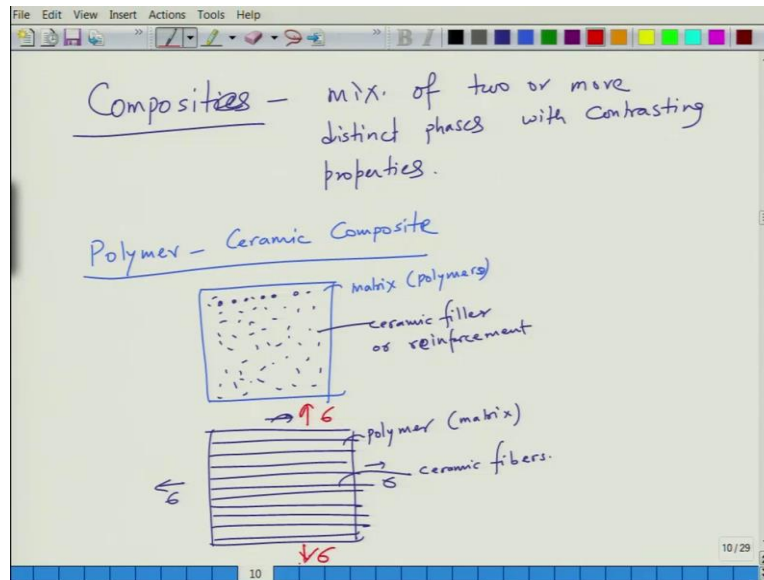 File Edit View Insert Actions Tools Help
B I
Composites – mix. of two or more
distinct phases with contrasting
properties.
Polymer – Ceramic Composite
matrix (polymers)
ceramic filler
or reinforcement
σ
polymer (matrix)
σ
σ
ceramic fibers.
σ
10/29
10